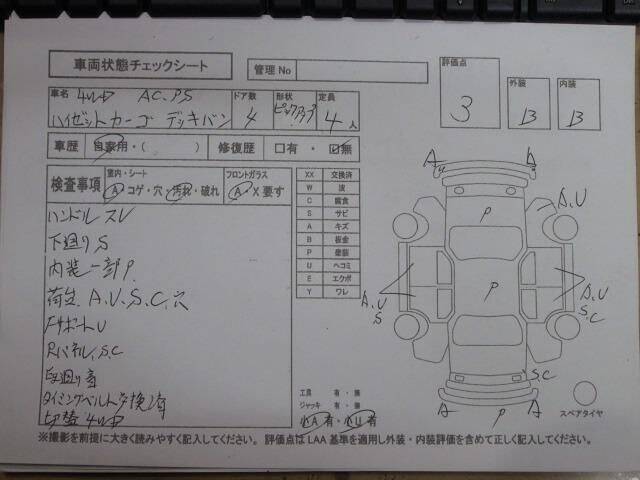 車両状態チェックシート
管理No
評価点 3
外装 B
内装 B
車名 4WD AC.PS
ハイゼットカーゴ デッキバン
ドア数 4
形状 ピックアップ
定員 4人
車歴 自家用・( )
修復歴 □有・☑無
検査事項
室内・シート
A コゲ・穴 汚れ・破れ
フロントガラス
A・X要す
ハンドルスレ
下廻りS
内装一部P
荷台 A.U.S.C.穴
FサポートU
Rパネル.S.C
足廻り音
タイミングベルト交換済
切替4WD
XX 交換済
W 波
C 腐食
S サビ
A キズ
B 板金
P 塗装
U ヘコミ
E エクボ
Y ワレ
A
P
A.U
P
A.U
S
A.U
S.C
S.C
A
P
A
工具 有・無
ジャッキ 有・無
小A有・小U有
スペアタイヤ
※撮影を前提に大きく読みやすく記入してください。 評価点はLAA基準を適用し外装・内装評価を含めて正しく記入してください。